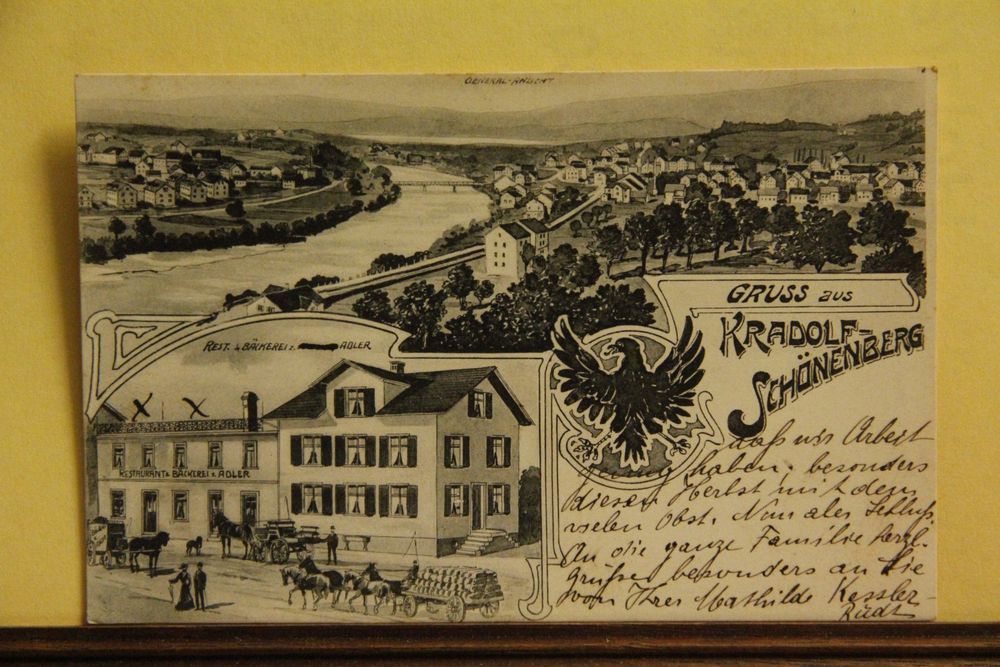 GENERAL-ANSICHT
GRUSS aus
KRADOLF-
SCHÖNENBERG
REST. & BÄCKEREI z. ADLER
RESTAURANT & BÄCKEREI z. ADLER
daß wir Arbeit
genug haben, besonders
diesen Herbst mit dem
vielen Obst. Nun aber Schluß.
An die ganze Familie herzl.
Grüße besonders an Sie
von Ihrer Mathilde Kessler-
Rüdt